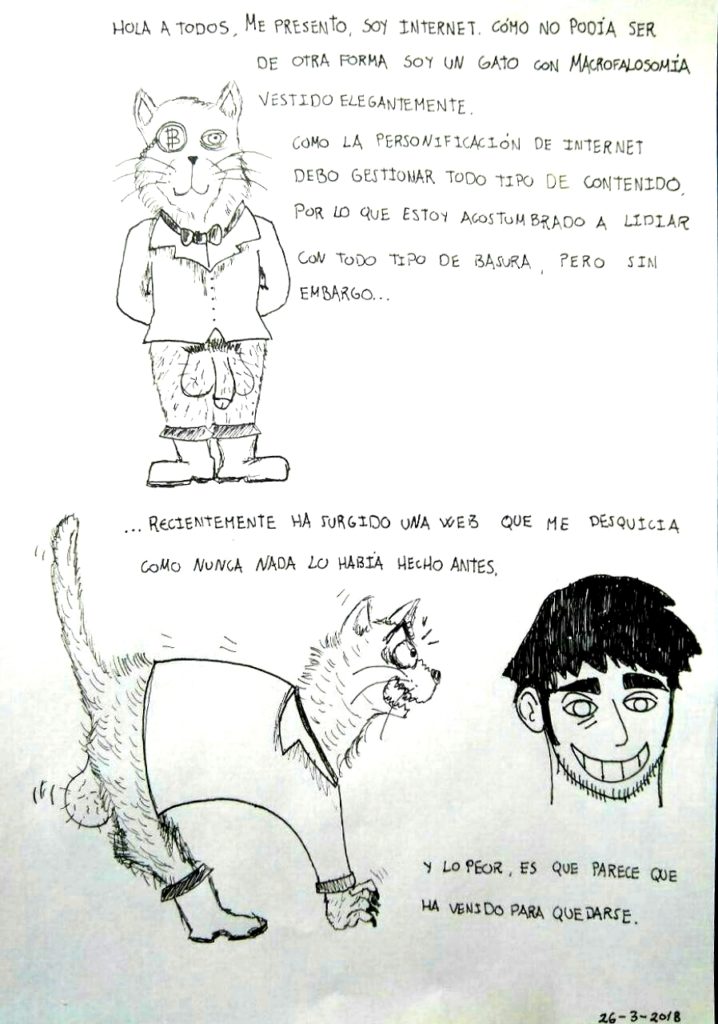 HOLA A TODOS, ME PRESENTO, SOY INTERNET. CÓMO NO PODÍA SER
DE OTRA FORMA SOY UN GATO CON MACROFALOSOMÍA
VESTIDO ELEGANTEMENTE.
COMO LA PERSONIFICACIÓN DE INTERNET
DEBO GESTIONAR TODO TIPO DE CONTENIDO,
POR LO QUE ESTOY ACOSTUMBRADO A LIDIAR
CON TODO TIPO DE BASURA, PERO SIN
EMBARGO...
... RECIENTEMENTE HA SURGIDO UNA WEB QUE ME DESQUICIA
COMO NUNCA NADA LO HABÍA HECHO ANTES,
Y LO PEOR, ES QUE PARECE QUE
HA VENIDO PARA QUEDARSE.
26-3-2018